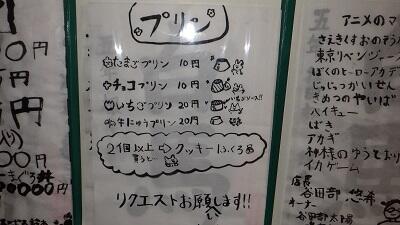 プリン
たまごプリン 10円
チョコプリン 10円
いちごプリン 20円
いちごソース!!
牛にゅうプリン 20円
2個以上⇨クッキー1ふくろ
買うと
リクエストお願します!!
円
円
万円
00円
00000円
アニメのマ
さえきくすおのそうな
東京リベンジャーズ
ぼくのヒーローアカデ
じゅじゅつかいせん
きめつのやいば
ハイキュー
ばき
アカギ
神様のゆうとおり
イカゲーム
店長
谷田部 悠希
オーナー
谷田部太陽